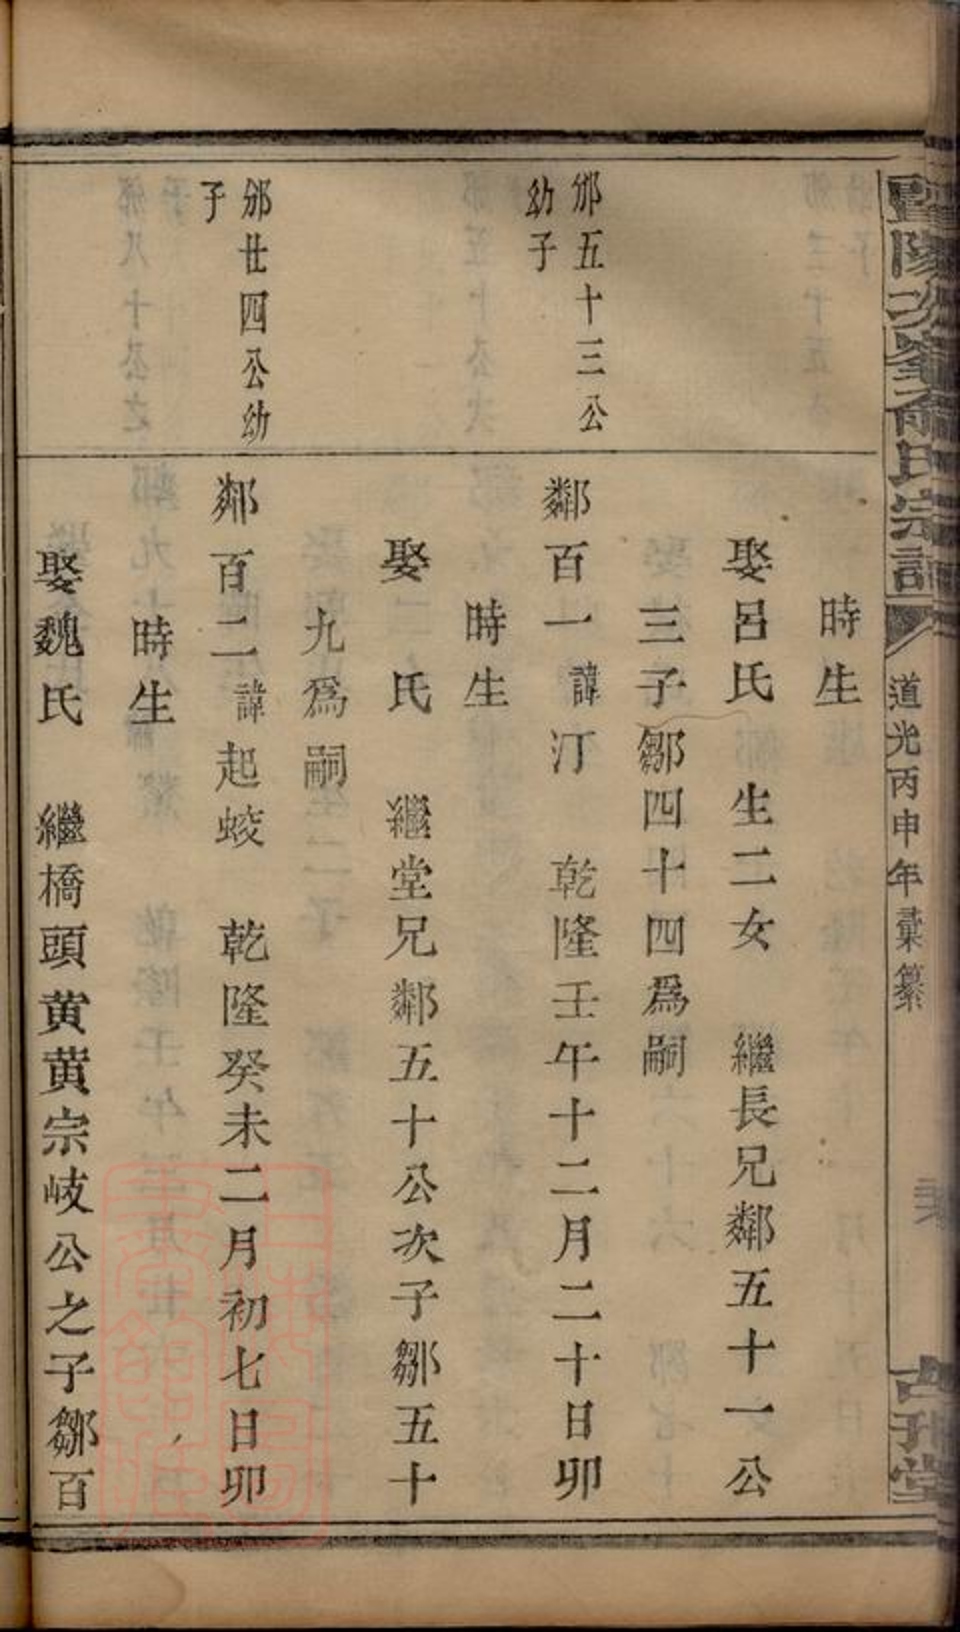 暨陽次峯俞氏宗譜
道光丙申年彚纂
古刊堂
時生
娶呂氏 生二女 繼長兄鄰五十一公
三子鄒四十四為嗣
邠五十三公
幼子
鄰百一諱汀 乾隆壬午十二月二十日卯
時生
娶 氏 繼堂兄鄰五十公次子鄒五十
九為嗣
邠廿四公幼
子
鄰百二諱起蛟 乾隆癸未二月初七日卯
時生
娶魏氏 繼橋頭黃黃宗岐公之子鄒百